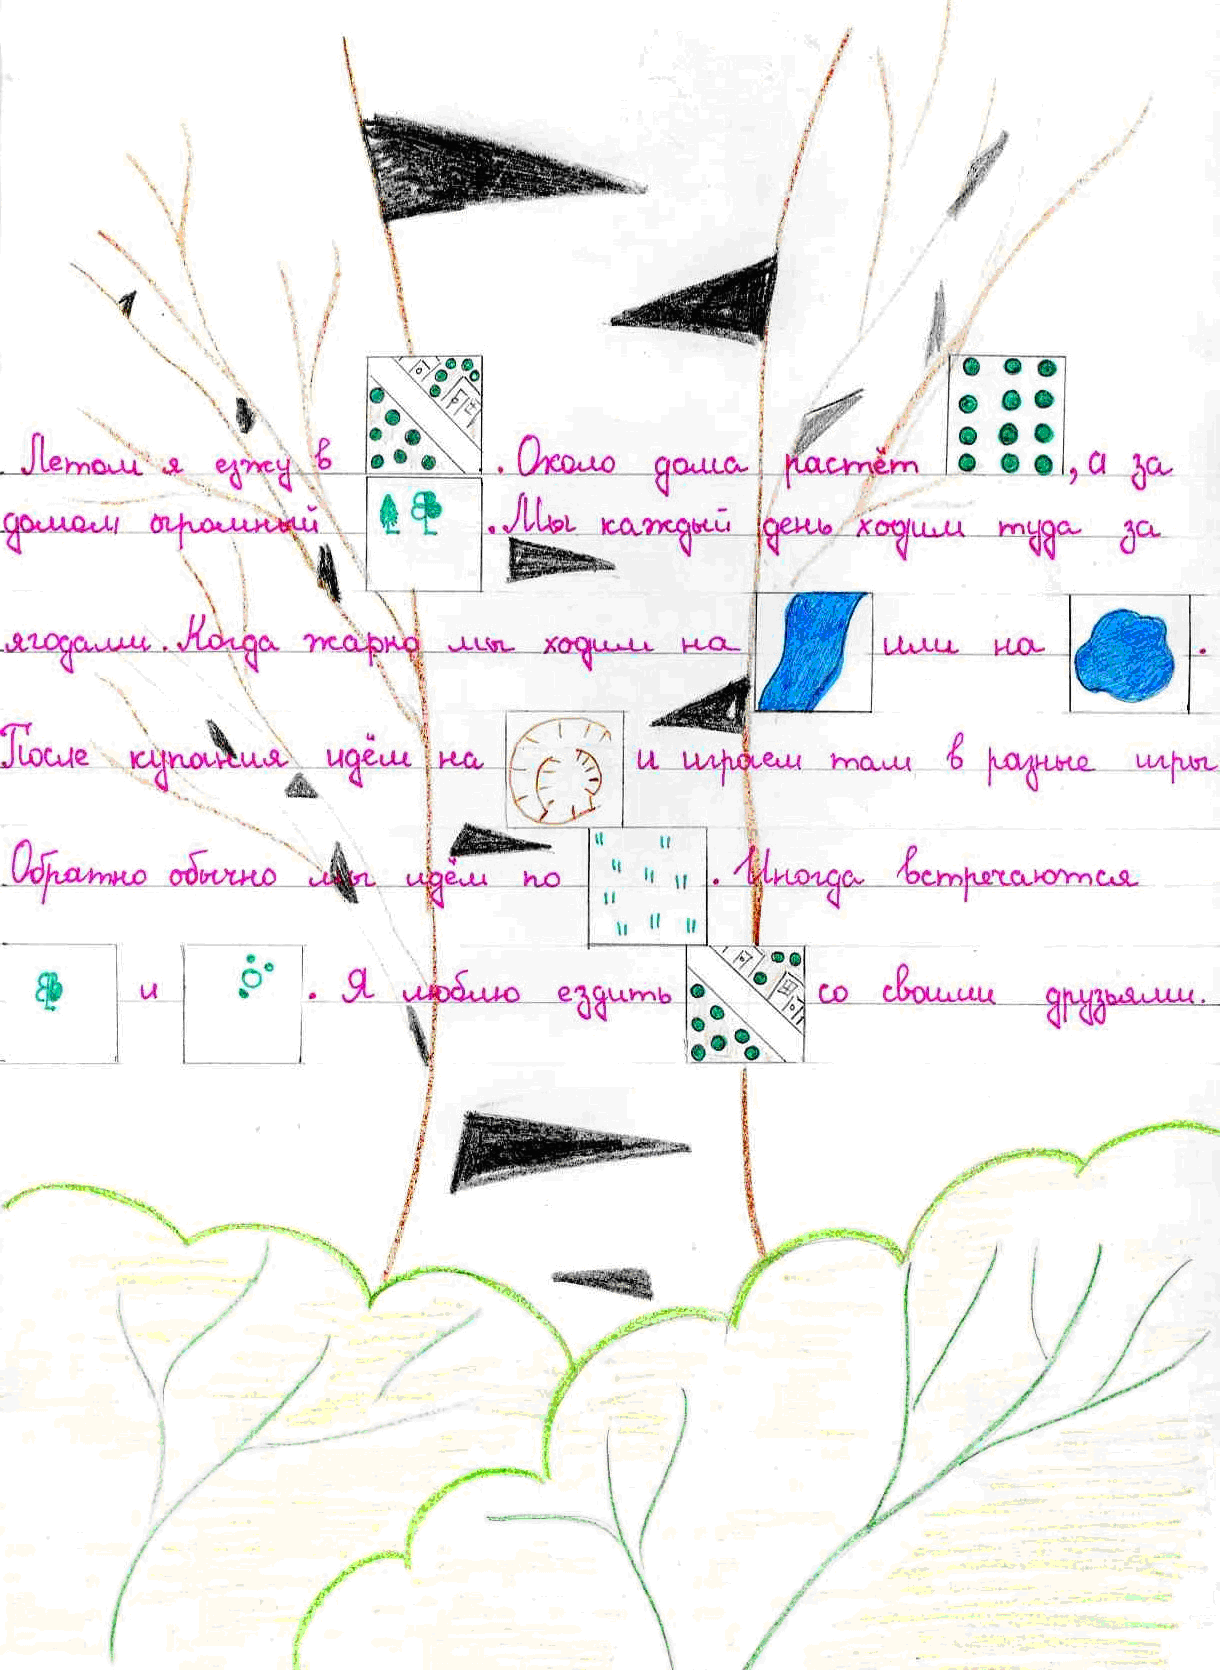 Летом я езжу в . Около дома растёт , а за
домом огромный . Мы каждый день ходим туда за
ягодами. Когда жарно мы ходим на или на .
После купания идём на и играем там в разные игры
Обратно обычно мы идём по . Иногда встречаются
и . Я люблю ездить со своими друзьями.